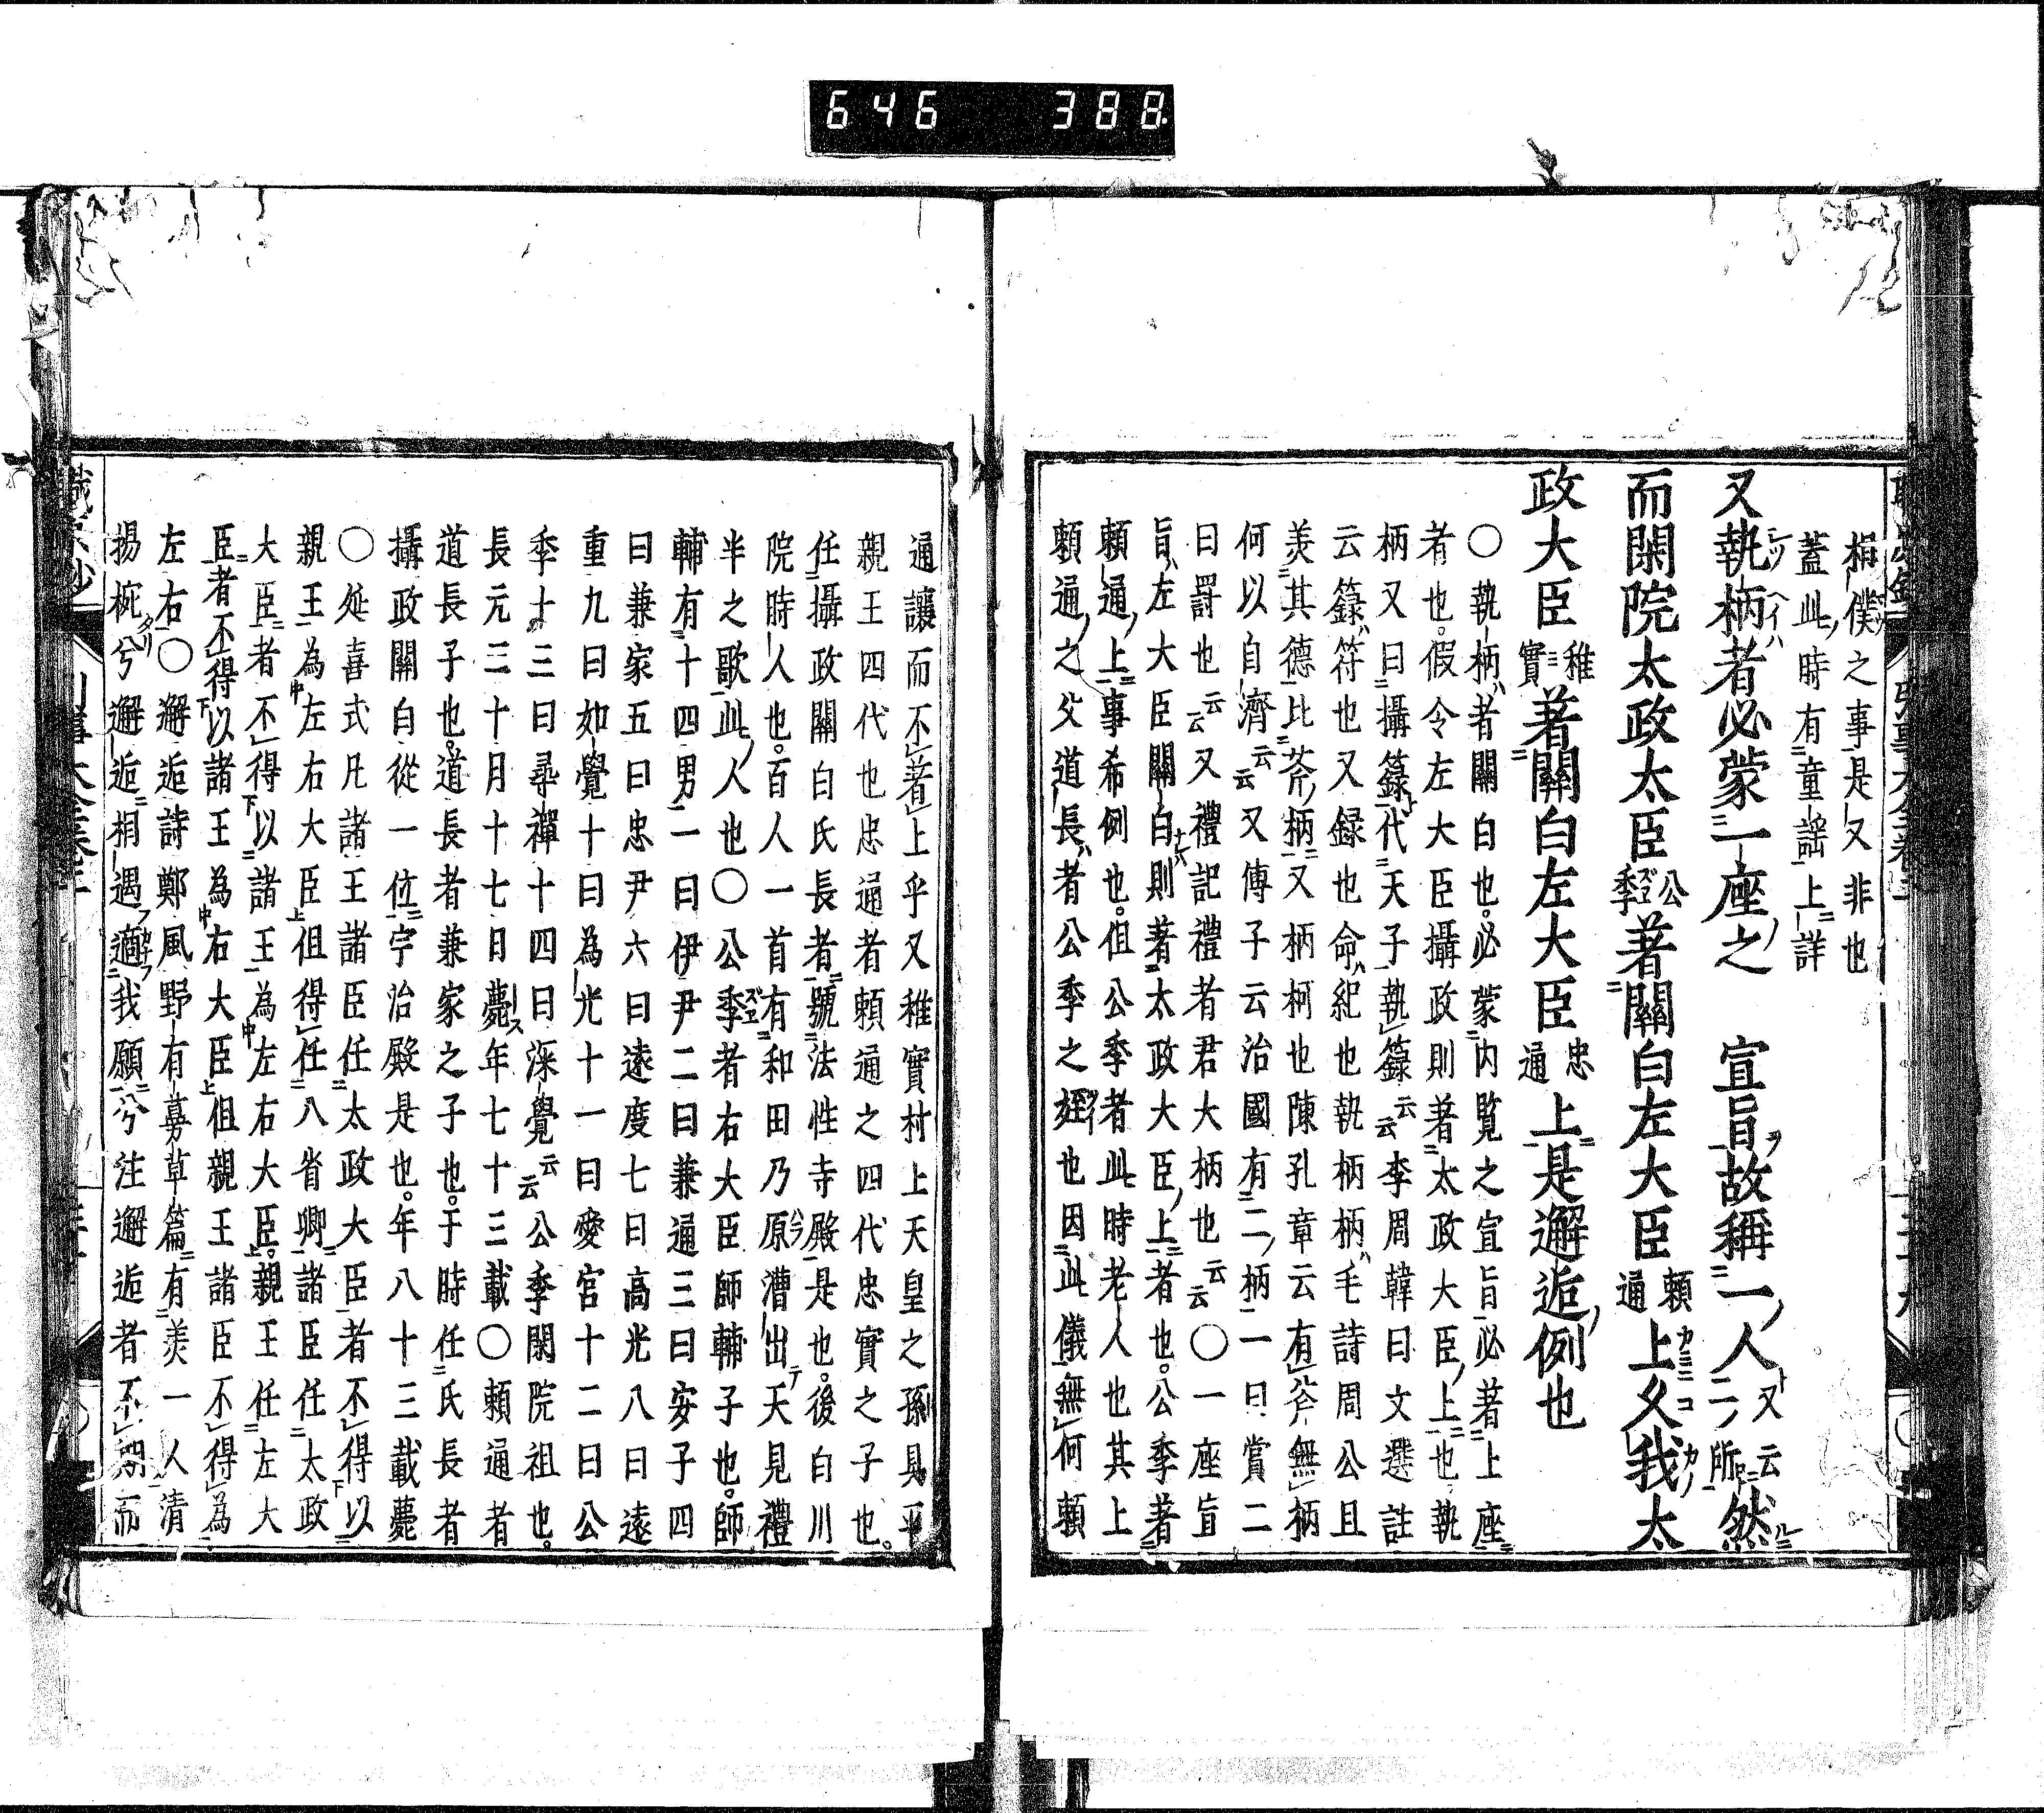 646 388.
相僕之事是又非也
蓋此時有童謡上詳
又執柄者必蒙一座之 宣旨故稱一人又云一ノ所然
而閑院太政太臣公季著關白左大臣頼通上久我太
政大臣雅實著關白左大臣忠通上是邂逅例也
〇執柄者關白也必蒙内覧之宣旨必著上座
者也假令左大臣攝政則著太政大臣上也執
柄又曰攝籙代天子執籙云云李周韓曰文選註
云籙符也又録也命紀也執柄柄毛詩周公且
羙其德比斧柄又柄柯也陳孔章云有斧無柄
何以自濟云云又傳子云治國有二柄一曰賞二
曰罸也云云又禮記禮者君大柄也云云〇一座旨
旨左大臣關白則著太政大臣上者也公季著
頼通上事希例也但公季者此時老人也其上
頼通之父道長者公季之姪也因此儀無何頼
通讓而不著上乎又雅實村上天皇之孫具平
親王四代也忠通者頼通之四代忠實之子也
任攝政關白氏長者號法性寺殿是也後白川
院時人也百人一首有和田乃原漕出天見禮
半之歌此人也〇公季者右大臣師輔子也師
輔有十四男一曰伊尹二曰兼通三曰安子四
曰兼家五曰忠尹六曰遠度七曰高光八曰遠
重九曰如覺十曰為光十一曰愛宮十二曰公
季十三曰尋禪十四曰深覺云云公季閑院祖也
長元二十月十七日薨年七十三載〇頼通者
道長子也道長者兼家之子也于時任氏長者
攝政關白從一位宇治殿是也年八十三載薨
〇延喜式凡諸王諸臣任太政大臣者不得以
親王為左右大臣但得任八省卿諸臣任太政
大臣者不得以諸王為左右大臣親王任左大
臣者不得以諸王為右大臣但親王諸臣不得為
左右〇邂逅詩鄭風野有蔓草篇有羙一人清
揚椀兮邂逅相遇適我願兮注邂逅者不期而